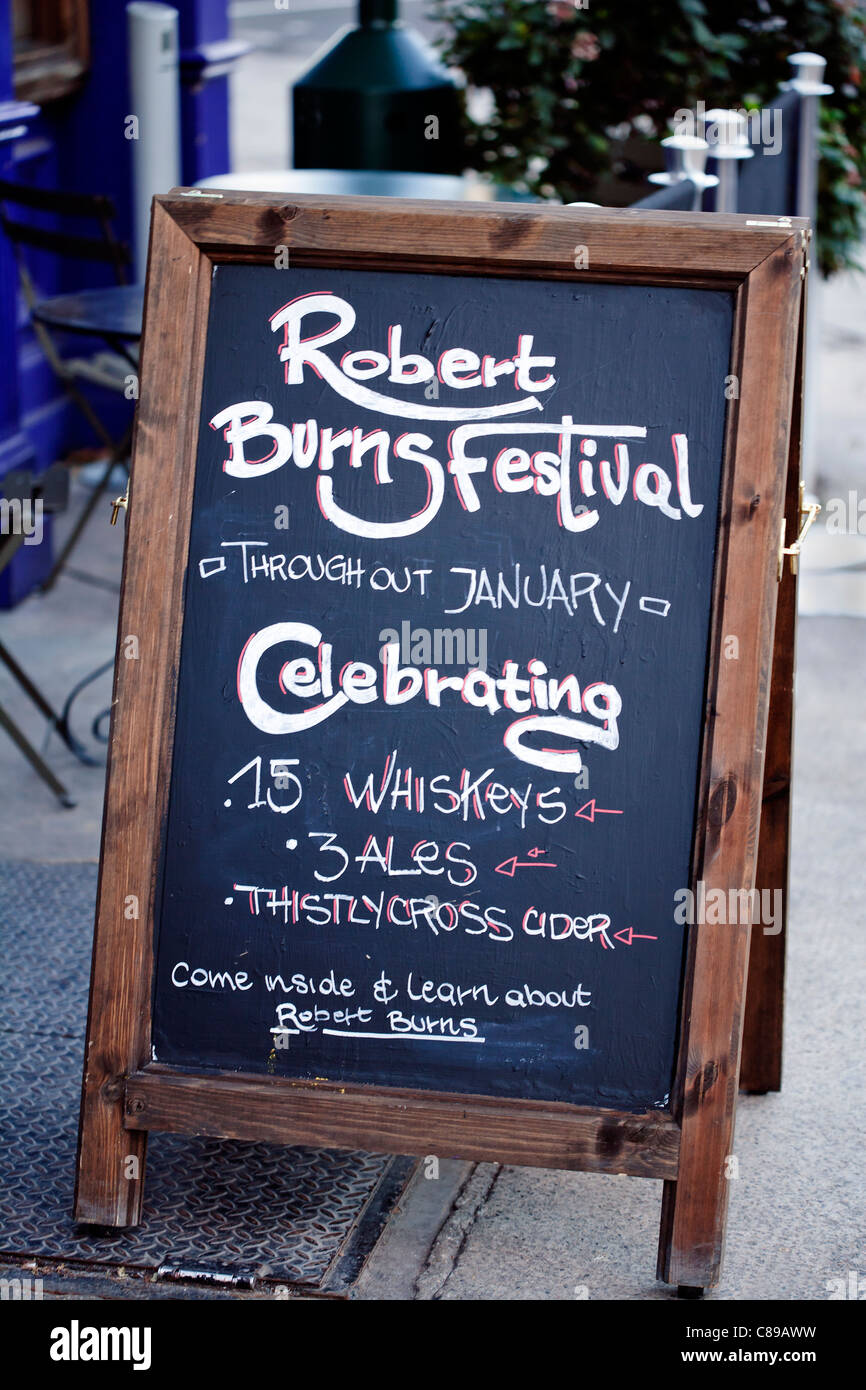 Robert
Burns Festival
THROUGHOUT JANUARY
Celebrating
.15 WHISKEYS
.3 ALES
.THISTLYCROSS CIDER
Come inside & learn about
Robert Burns
alamy
Image ID: C89AWW
www.alamy.com